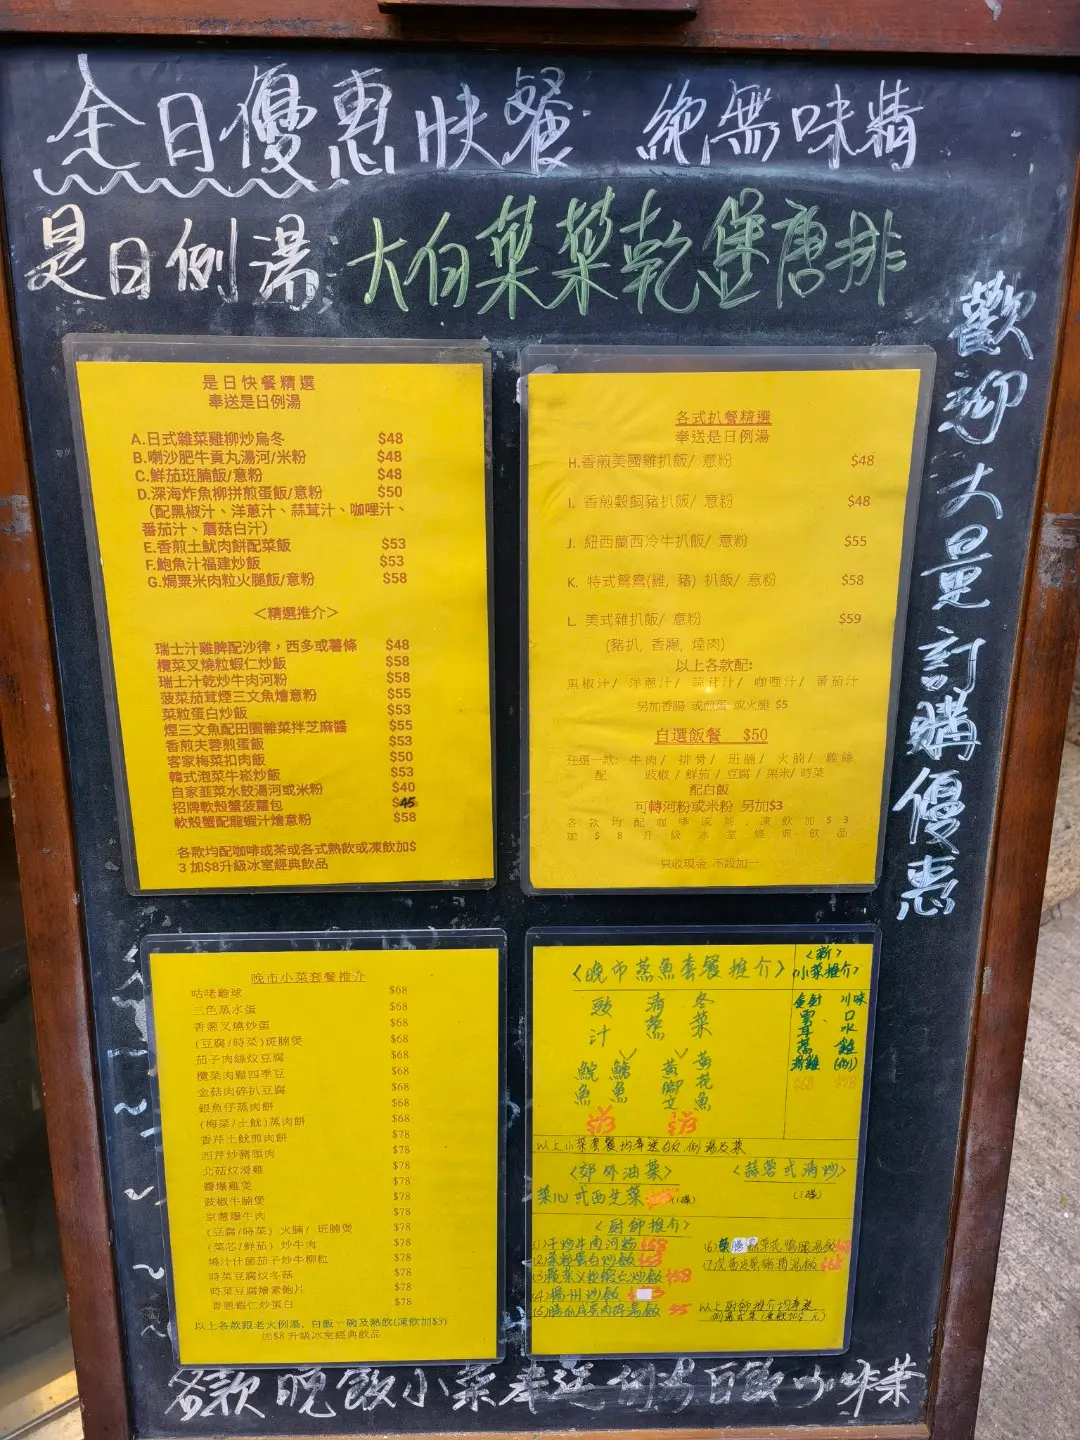 全日優惠快餐 絕無味精
是日例湯: 大白菜菜乾煲唐排
歡迎大量訂購優惠
是日快餐精選
奉送是日例湯
A.日式雜菜雞柳炒烏冬 $48
B.喇沙肥牛貢丸湯河/米粉 $48
C.鮮茄班腩飯/意粉 $48
D.深海炸魚柳拼煎蛋飯/意粉 $50
(配黑椒汁、洋蔥汁、蒜茸汁、咖哩汁、
番茄汁、蘑菇白汁)
E.香煎土魷肉餅配菜飯 $53
F.鮑魚汁福建炒飯 $53
G.焗粟米肉粒火腿飯/意粉 $58
<精選推介>
瑞士汁雞脾配沙律，西多或薯條 $48
欖菜叉燒粒蝦仁炒飯 $58
瑞士汁乾炒牛肉河粉 $58
菠菜茄茸煙三文魚燴意粉 $55
菜粒蛋白炒飯 $53
煙三文魚配田園雜菜拌芝麻醬 $55
香煎芙蓉煎蛋飯 $53
客家梅菜扣肉飯 $50
韓式泡菜牛崧炒飯 $53
自家韮菜水餃湯河或米粉 $40
招牌軟殼蟹菠蘿包 $45
軟殼蟹配龍蝦汁燴意粉 $58
各款均配咖啡或茶或各式熱飲或凍飲加$
3 加$8升級冰室經典飲品
各式扒餐精選
奉送是日例湯
H.香煎美國雞扒飯/ 意粉 $48
I. 香煎穀飼豬扒飯/ 意粉 $48
J. 紐西蘭西冷牛扒飯/ 意粉 $55
K. 特式鴛鴦(雞, 豬) 扒飯/ 意粉 $58
L. 美式雜扒飯/ 意粉 $59
(豬扒, 香腸, 煙肉)
以上各款配:
黑椒汁/ 洋蔥汁/ 蒜茸汁/ 咖哩汁/ 蕃茄汁
另加香腸 或煎蛋 或火腿 $5
自選飯餐 $50
任選一款: 牛肉/ 排骨/ 班腩/ 火腩/ 雞絲
配 豉椒/鮮茄/豆腐/粟米/時菜
配白飯
可轉河粉或米粉 另加$3
各款均配咖啡或茶,凍飲加$3
加$8升級冰室經典飲品
只收現金 不設加一
晚市小菜套餐推介
咕咾雞球 $68
三色蒸水蛋 $68
香蔥叉燒炒蛋 $68
(豆腐/時菜)斑腩煲 $68
茄子肉絲炆豆腐 $68
欖菜肉鬆四季豆 $68
金菇肉碎扒豆腐 $68
銀魚仔蒸肉餅 $68
(梅菜/土魷)蒸肉餅 $68
香芹土魷煎肉餅 $78
西芹炒豬頸肉 $78
北菇炆滑雞 $78
醬爆雞煲 $78
豉椒牛腩煲 $78
京蔥爆牛肉 $78
(豆腐/時菜) 火腩/ 班腩煲 $78
(菜芯/鮮茄) 炒牛肉 $78
燒汁什菌茄子炒牛柳粒 $78
時菜豆腐炆冬菇 $78
時菜豆腐燴素鮑片 $78
香蔥蝦仁炒蛋白 $78
以上各款跟老火例湯、白飯一碗及熱飲(凍飲加$3)
加$8升級冰室經典飲品
<晚市蒸魚套餐推介>
豉汁 清蒸 冬菜
鯇魚 鱸魚 黃腳立 黃花魚
$73 $73
以上小菜套餐均奉送白飯,例湯及菜
<新>
小菜推介>
雲耳蒸滑雞 $68
川味口水雞(例) $78
<郊外油菜> <蒜蓉或清炒>
菜心或西生菜
<廚師推介>
(1)干炒牛肉河粉 $58
(2)菜粒蛋白炒飯 $53
(3)欖菜叉燒蝦仁炒飯 $58
(4)揚州炒飯 $53
以上廚師推介均奉送
各款晚飯小菜奉送例湯白飯咖啡茶